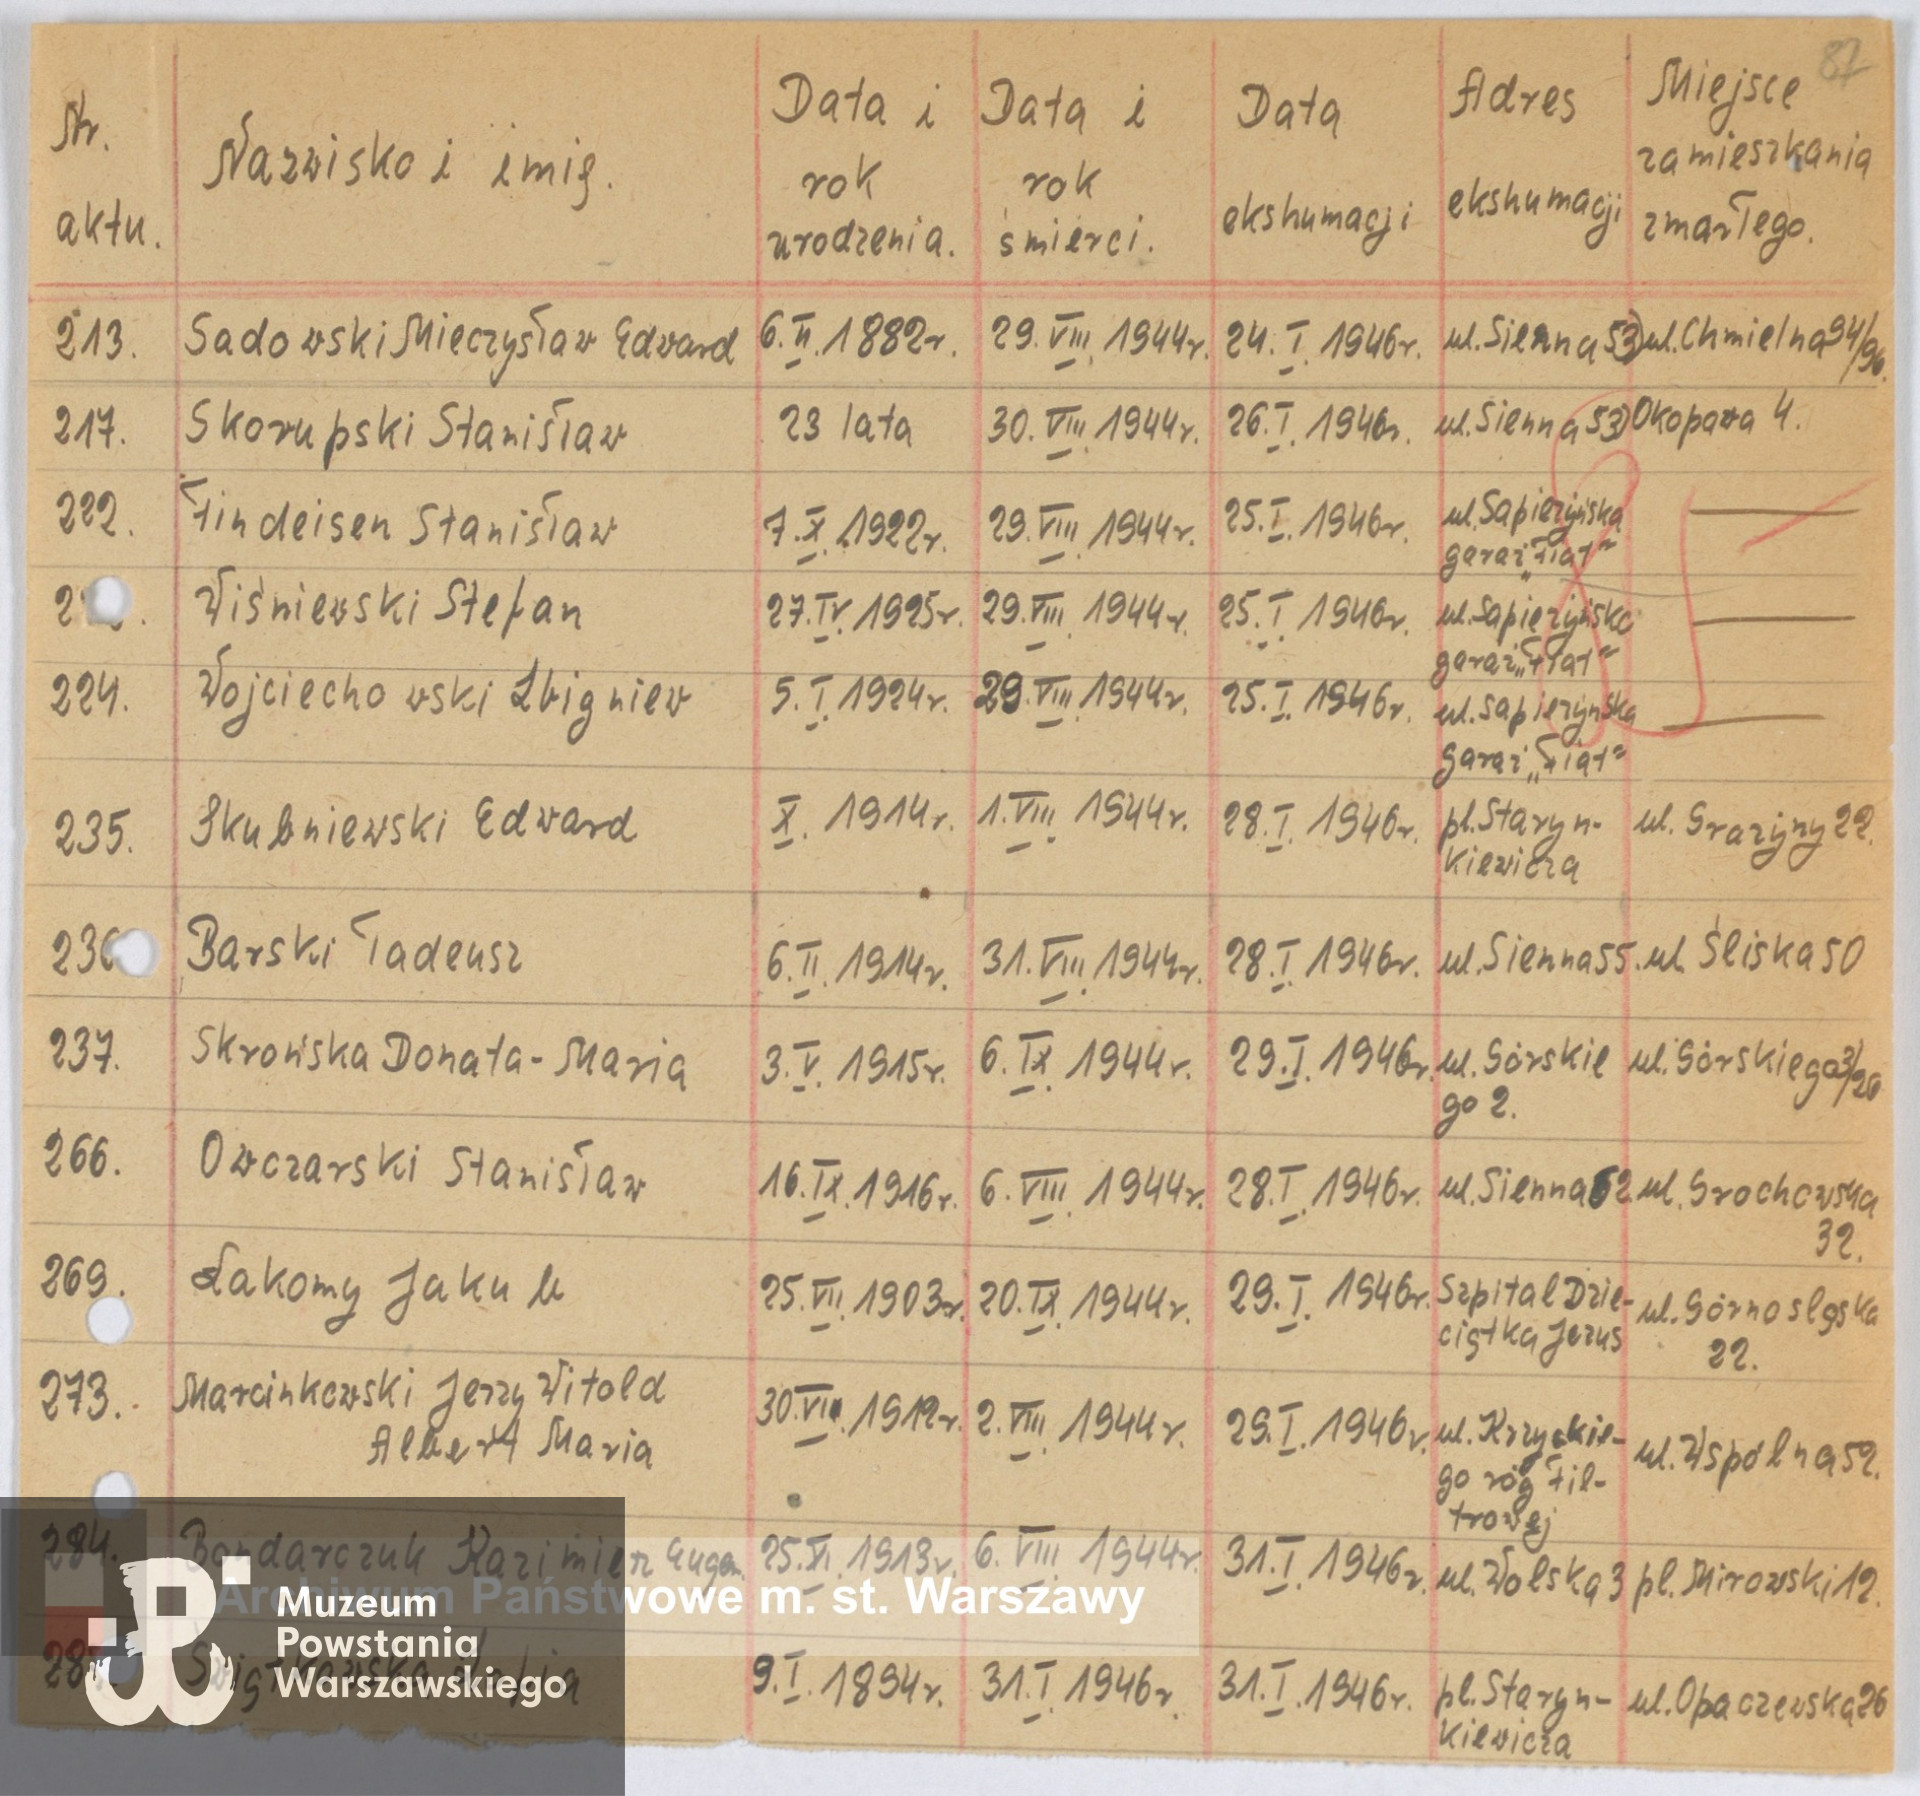 87
Nr. aktu.
Nazwisko i imię.
Data i rok urodzenia.
Data i rok śmierci.
Data ekshumacji
Adres ekshumacji
Miejsce zamieszkania zmarłego.
213. Sadowski Mieczysław Edward 6.II.1882r. 29.VIII.1944r. 24.I.1946r. ul.Sienna 53 ul.Chmielna 94/96.
217. Skorupski Stanisław 23 lata 30.VIII.1944r. 26.I.1946r. ul.Sienna 53 Okopowa 4.
222. Findeisen Stanisław 7.X.1922r. 29.VIII.1944r. 25.I.1946r. ul.Sapieżyńska
garaż „Fiat"
Wiśniewski Stefan 27.IV.1925r. 29.VIII.1944r. 25.I.1946r. ul.Sapieżyńska
garaż „Fiat"
224. Wojciechowski Zbigniew 5.I.1924r. 29.VIII.1944r. 25.I.1946r. ul.Sapieżyńska
garaż „Fiat"
235. Skubniewski Edward X.1914r. 1.VIII.1944r. 28.I.1946r. pl.Staryn- ul.Grażyny 22.
kiewicza
236 Barski Tadeusz 6.II.1914r. 31.VIII.1944r. 28.I.1946r. ul.Sienna 55. ul.Śliska 50
237. Skrońska Donata-Maria 3.V.1915r. 6.IX.1944r. 29.I.1946r. ul.Górskie ul.Górskiego 3/20
go 2.
266. Owczarski Stanisław 16.IX.1916r. 6.VIII.1944r. 28.I.1946r. ul.Sienna 62 ul.Grochowska
32.
269. Łakomy Jakub 25.VII.1903r. 20.IX.1944r. 29.I.1946r. Szpital Dzie- ul.Górnoslęska
ciątka Jezus 22.
273. Marcinkowski Jerzy Witold 30.VIII.1912r. 2.VIII.1944r. 29.I.1946r. ul.Krzyckie- ul.Wspólna 52.
Albert Maria go róg Fil-
trowej
284. Bondarczuk Kazimierz Eugen. 25.XI.1913r. 6.VIII.1944r. 31.I.1946r. ul.Wolska 3 pl.Mirowski 12.
Archiwum Państwowe m. st. Warszawy
9.I.1894r. 31.I.1946r. 31.I.1946r. pl.Staryn- ul.Opaczewska 26
kiewicza
Muzeum
Powstania
Warszawskiego